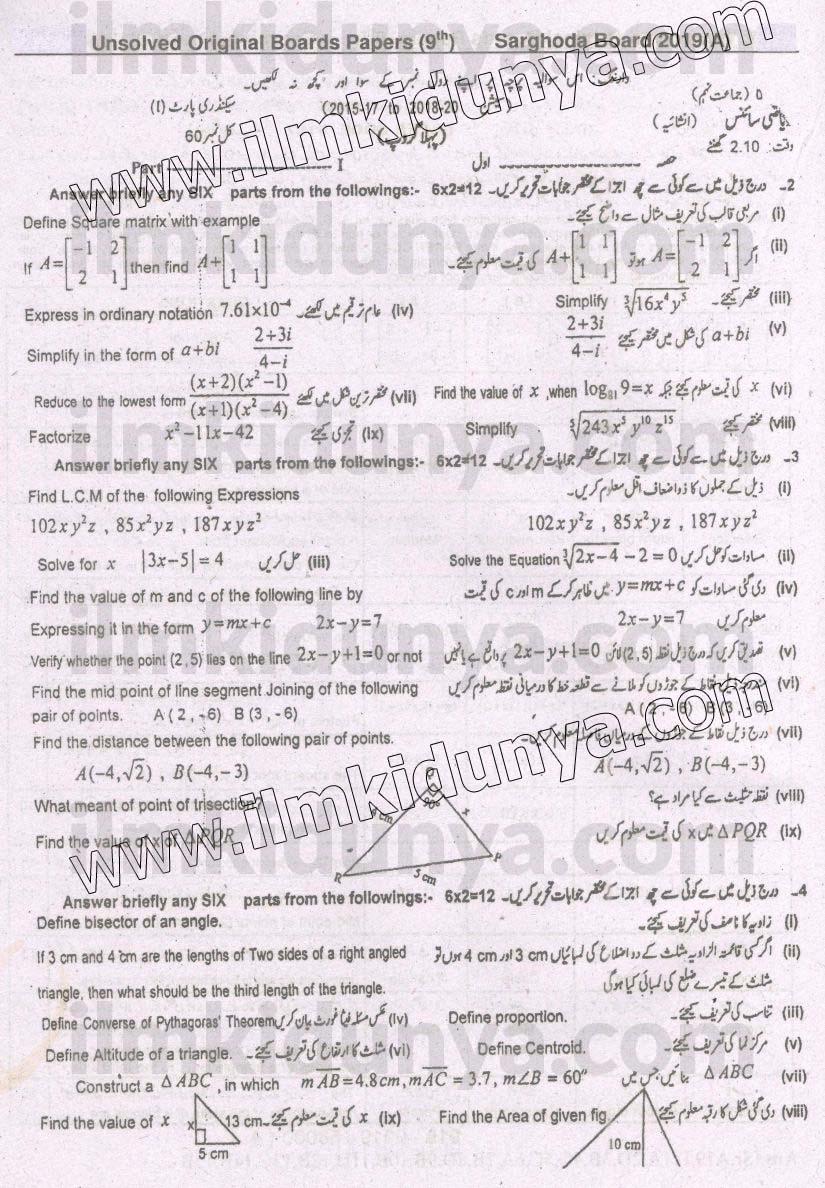 Unsolved Original Boards Papers (9th) Sarghoda Board 2019(A)
سیکنڈری پارٹ (I) (2015-17 to 2018-20) (جماعت نہم)
کل نمبر 60 (پہلا گروپ) (انشائیہ) وقت: 2.10 گھنٹے
Part I حصہ اول
Answer briefly any SIX parts from the followings:- 6x2=12 درج ذیل میں سے کوئی سے چھ اجزا کے مختصر جوابات تحریر کریں۔ 2-
Define Square matrix with example مربعی قالب کی تعریف مثال سے واضح کیجئے۔ (i)
If A=[-1 2; 2 1] then find A+[1 1; 1 1] اگر A=[-1 2; 2 1] ہو تو A+[1 1; 1 1] کی قیمت معلوم کیجئے۔ (ii)
Simplify ∛16x⁴y⁵ مختصر کیجئے۔ (iii)
Express in ordinary notation 7.61×10⁻⁴ عام ترقیم میں لکھئے۔ (iv)
Simplify in the form of a+bi (2+3i)/(4-i) (2+3i)/(4-i) a+bi کی شکل میں مختصر کیجئے (v)
Find the value of x ,when log₈₁ 9=x x کی قیمت معلوم کیجئے جبکہ (vi)
Reduce to the lowest form (x+2)(x²-1)/(x+1)(x²-4) مختصر ترین شکل میں لکھئے (vii)
Simplify ⁵√243x⁵ y¹⁰ z¹⁵ مختصر کیجئے (viii)
Factorize x²-11x-42 تجزی کیجئے (ix)
Answer briefly any SIX parts from the followings:- 6x2=12 درج ذیل میں سے کوئی سے چھ اجزا کے مختصر جوابات تحریر کریں۔ 3-
Find L.C.M of the following Expressions ذیل کے جملوں کا ذواضعاف اقل معلوم کریں۔ (i)
102xy²z , 85x²yz , 187xyz² 102xy²z , 85x²yz , 187xyz²
Solve the Equation ∛2x-4 -2=0 مساوات کو حل کریں (ii)
Solve for x |3x-5|=4 حل کریں (iii)
Find the value of m and c of the following line by دی گئی مساوات کو y=mx+c میں ظاہر کرکے m اور c کی قیمت (iv)
Expressing it in the form y=mx+c 2x-y=7 2x-y=7 معلوم کریں
Verify whether the point (2,5) lies on the line 2x-y+1=0 or not تصدیق کریں کہ درج ذیل نقطہ (2,5) لائن 2x-y+1=0 پر واقع ہے یا نہیں (v)
Find the mid point of line segment Joining of the following نقاط کے جوڑوں کو ملانے سے قطعہ خط کا درمیانی نقطہ معلوم کریں (vi)
pair of points. A ( 2 , -6) B (3 , -6) A ( 2 , -6) B (3 , -6)
Find the distance between the following pair of points. درج ذیل نقاط کے (vii)
A(-4,√2) , B(-4,-3) A(-4,√2) , B(-4,-3)
What meant of point of trisection? نقطہ تثلیث سے کیا مراد ہے؟ (viii)
Find the value of x of △PQR △PQR میں x کی قیمت معلوم کریں (ix)
Q
90°
x
R
P
5 cm
Answer briefly any SIX parts from the followings:- 6x2=12 درج ذیل میں سے کوئی سے چھ اجزا کے مختصر جوابات تحریر کریں۔ 4-
Define bisector of an angle. زاویہ کا ناصف کی تعریف کیجئے۔ (i)
If 3 cm and 4 cm are the lengths of Two sides of a right angled اگر کسی قائمۃ الزاویہ مثلث کے دو اضلاع کی لمبائیاں 3 cm اور 4 cm ہوں تو (ii)
triangle, then what should be the third length of the triangle. مثلث کے تیسرے ضلع کی لمبائی کیا ہوگی
Define proportion. تناسب کی تعریف کیجئے۔ (iii)
Define Converse of Pythagoras' Theorem عکس مسئلہ فیثا غورث بیان کریں (iv)
Define Centroid. مرکز نما کی تعریف کیجئے۔ (v)
Define Altitude of a triangle. مثلث کا ارتفاع کی تعریف کیجئے۔ (vi)
Construct a △ABC , in which mAB=4.8cm,mAC=3.7,m∠B=60″ △ABC بنائیں جس میں (vii)
Find the Area of given fig دی گئی شکل کا رقبہ معلوم کیجئے (viii)
10 cm
Find the value of x x کی قیمت معلوم کیجئے۔ (ix)
x
13 cm
5 cm
www.ilmkidunya.com
www.ilmkidunya.com
ilmkidunya.com
ilmkidunya.com
ilmkidunya.com
ilmkidunya.com
ilmkidunya.com
ilmkidunya.com